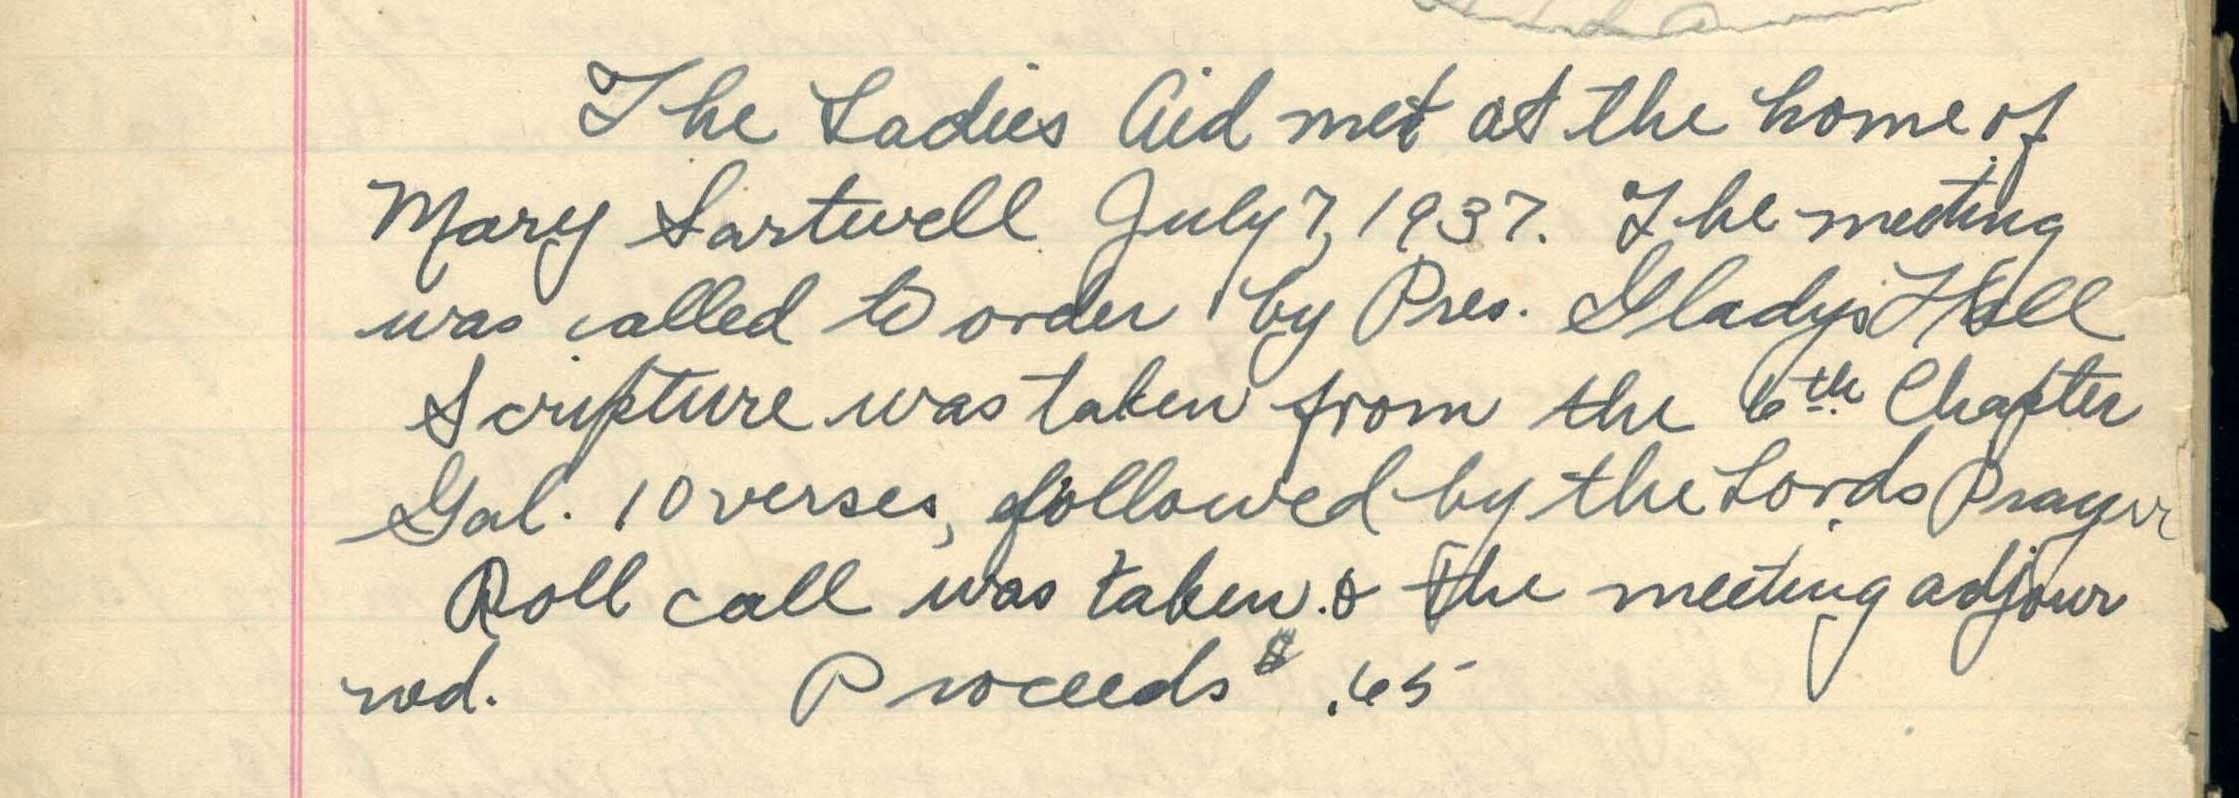 The Ladies Aid met at the home of
Mary Sartwell July 7, 1937. The meeting
was called to order by Pres. Gladys Hall
Scripture was taken from the 6th Chapter
Gal. 10 verses, followed by the Lords Prayer
Roll call was taken. & the meeting adjour
ned. Proceeds $ .65